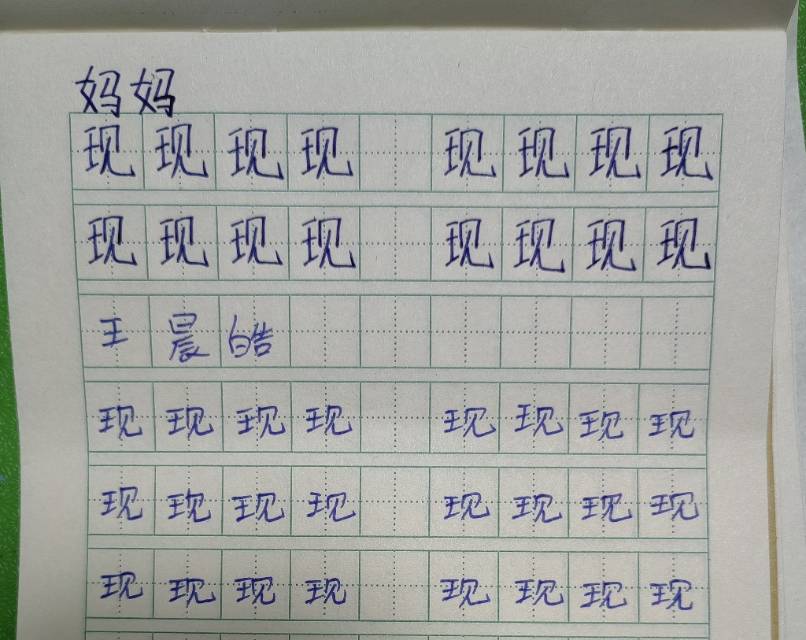 妈妈
现现现现 现现现现
现现现现 现现现现
王晨皓
现现现现 现现现现
现现现现 现现现现
现现现现 现现现现